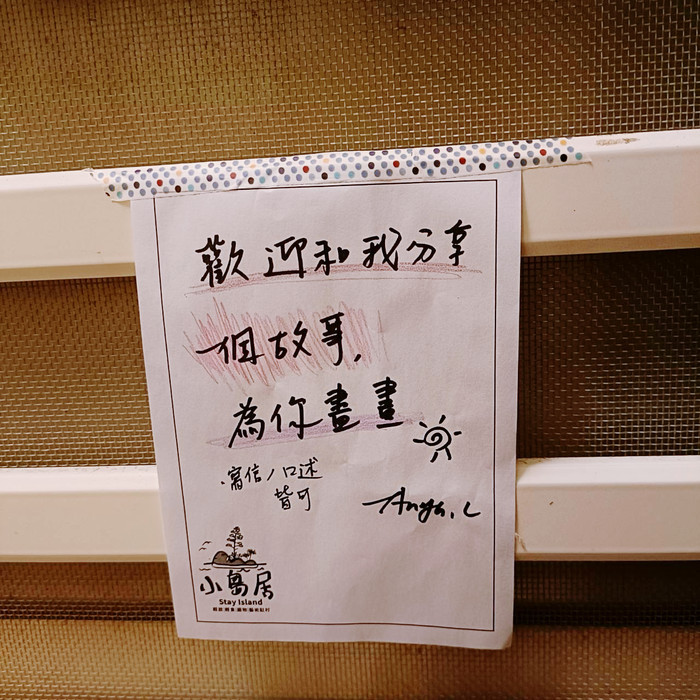 歡迎和我分享
一個故事,
為你畫畫
寫信/口述
皆可
小島居
Stay Island